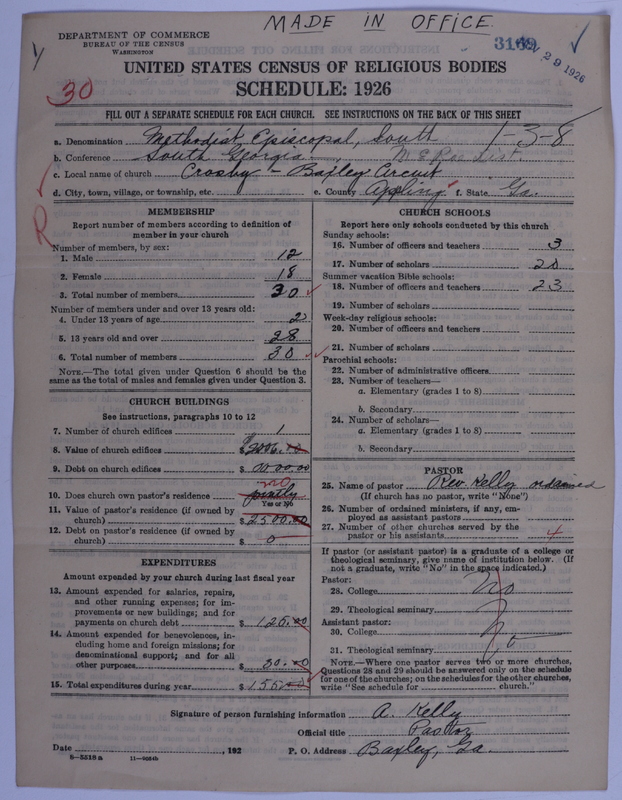 MADE IN OFFICE.
DEPARTMENT OF COMMERCE
BUREAU OF THE CENSUS
WASHINGTON
29 1926
UNITED STATES CENSUS OF RELIGIOUS BODIES
SCHEDULE: 1926
30
FILL OUT A SEPARATE SCHEDULE FOR EACH CHURCH. SEE INSTRUCTIONS ON THE BACK OF THIS SHEET
1-3-8
a. Denomination Methodist Episcopal, South
b. Conference South Georgia
c. Local name of church Crosby - Baxley Circuit
d. City, town, village, or township, etc. e. County Appling f. State Ga.
R
MEMBERSHIP
Report number of members according to definition of
member in your church
Number of members, by sex:
1. Male 12
2. Female 18
3. Total number of members 30
Number of members under and over 13 years old:
4. Under 13 years of age 2
5. 13 years old and over 28
6. Total number of members 30
NOTE.—The total given under Question 6 should be
the same as the total of males and females given under Question 3.
CHURCH BUILDINGS
See instructions, paragraphs 10 to 12
7. Number of church edifices 1
8. Value of church edifices $
9. Debt on church edifices $
no
10. Does church own pastor's residence partly
Yes or no
11. Value of pastor's residence (if owned by
church) $ 2500.00
12. Debt on pastor's residence (if owned by
church) $ 0
EXPENDITURES
Amount expended by your church during last fiscal year
13. Amount expended for salaries, repairs,
and other running expenses; for im-
provements or new buildings; and for
payments on church debt $ 125.00
14. Amount expended for benevolences, in-
cluding home and foreign missions; for
denominational support; and for all
other purposes $ 30.00
15. Total expenditures during year $ 155.00
CHURCH SCHOOLS
Report here only schools conducted by this church
Sunday schools:
16. Number of officers and teachers 3
17. Number of scholars 20
Summer vacation Bible schools:
18. Number of officers and teachers 23
19. Number of scholars
Week-day religious schools:
20. Number of officers and teachers
21. Number of scholars
Parochial schools:
22. Number of administrative officers
23. Number of teachers—
a. Elementary (grades 1 to 8)
b. Secondary
24. Number of scholars—
a. Elementary (grades 1 to 8)
b. Secondary
PASTOR
25. Name of pastor Rev. Kelly ordained
(If church has no pastor, write "None")
26. Number of ordained ministers, if any, em-
ployed as assistant pastors
27. Number of other churches served by the
pastor or his assistants 4
If pastor (or assistant pastor) is a graduate of a college or
theological seminary, give name of institution below. (If
not a graduate, write "No" in the space indicated.)
Pastor:
28. College No
29. Theological seminary
Assistant pastor:
30. College No
31. Theological seminary
NOTE.—Where one pastor serves two or more churches,
Questions 28 and 29 should be answered only on the schedule
for one of the churches; on the schedules for the other churches,
write "See schedule for church."
Signature of person furnishing information A. Kelly
Official title Pastor
Date , 192 P. O. Address Baxley, Ga.
8—5518 a